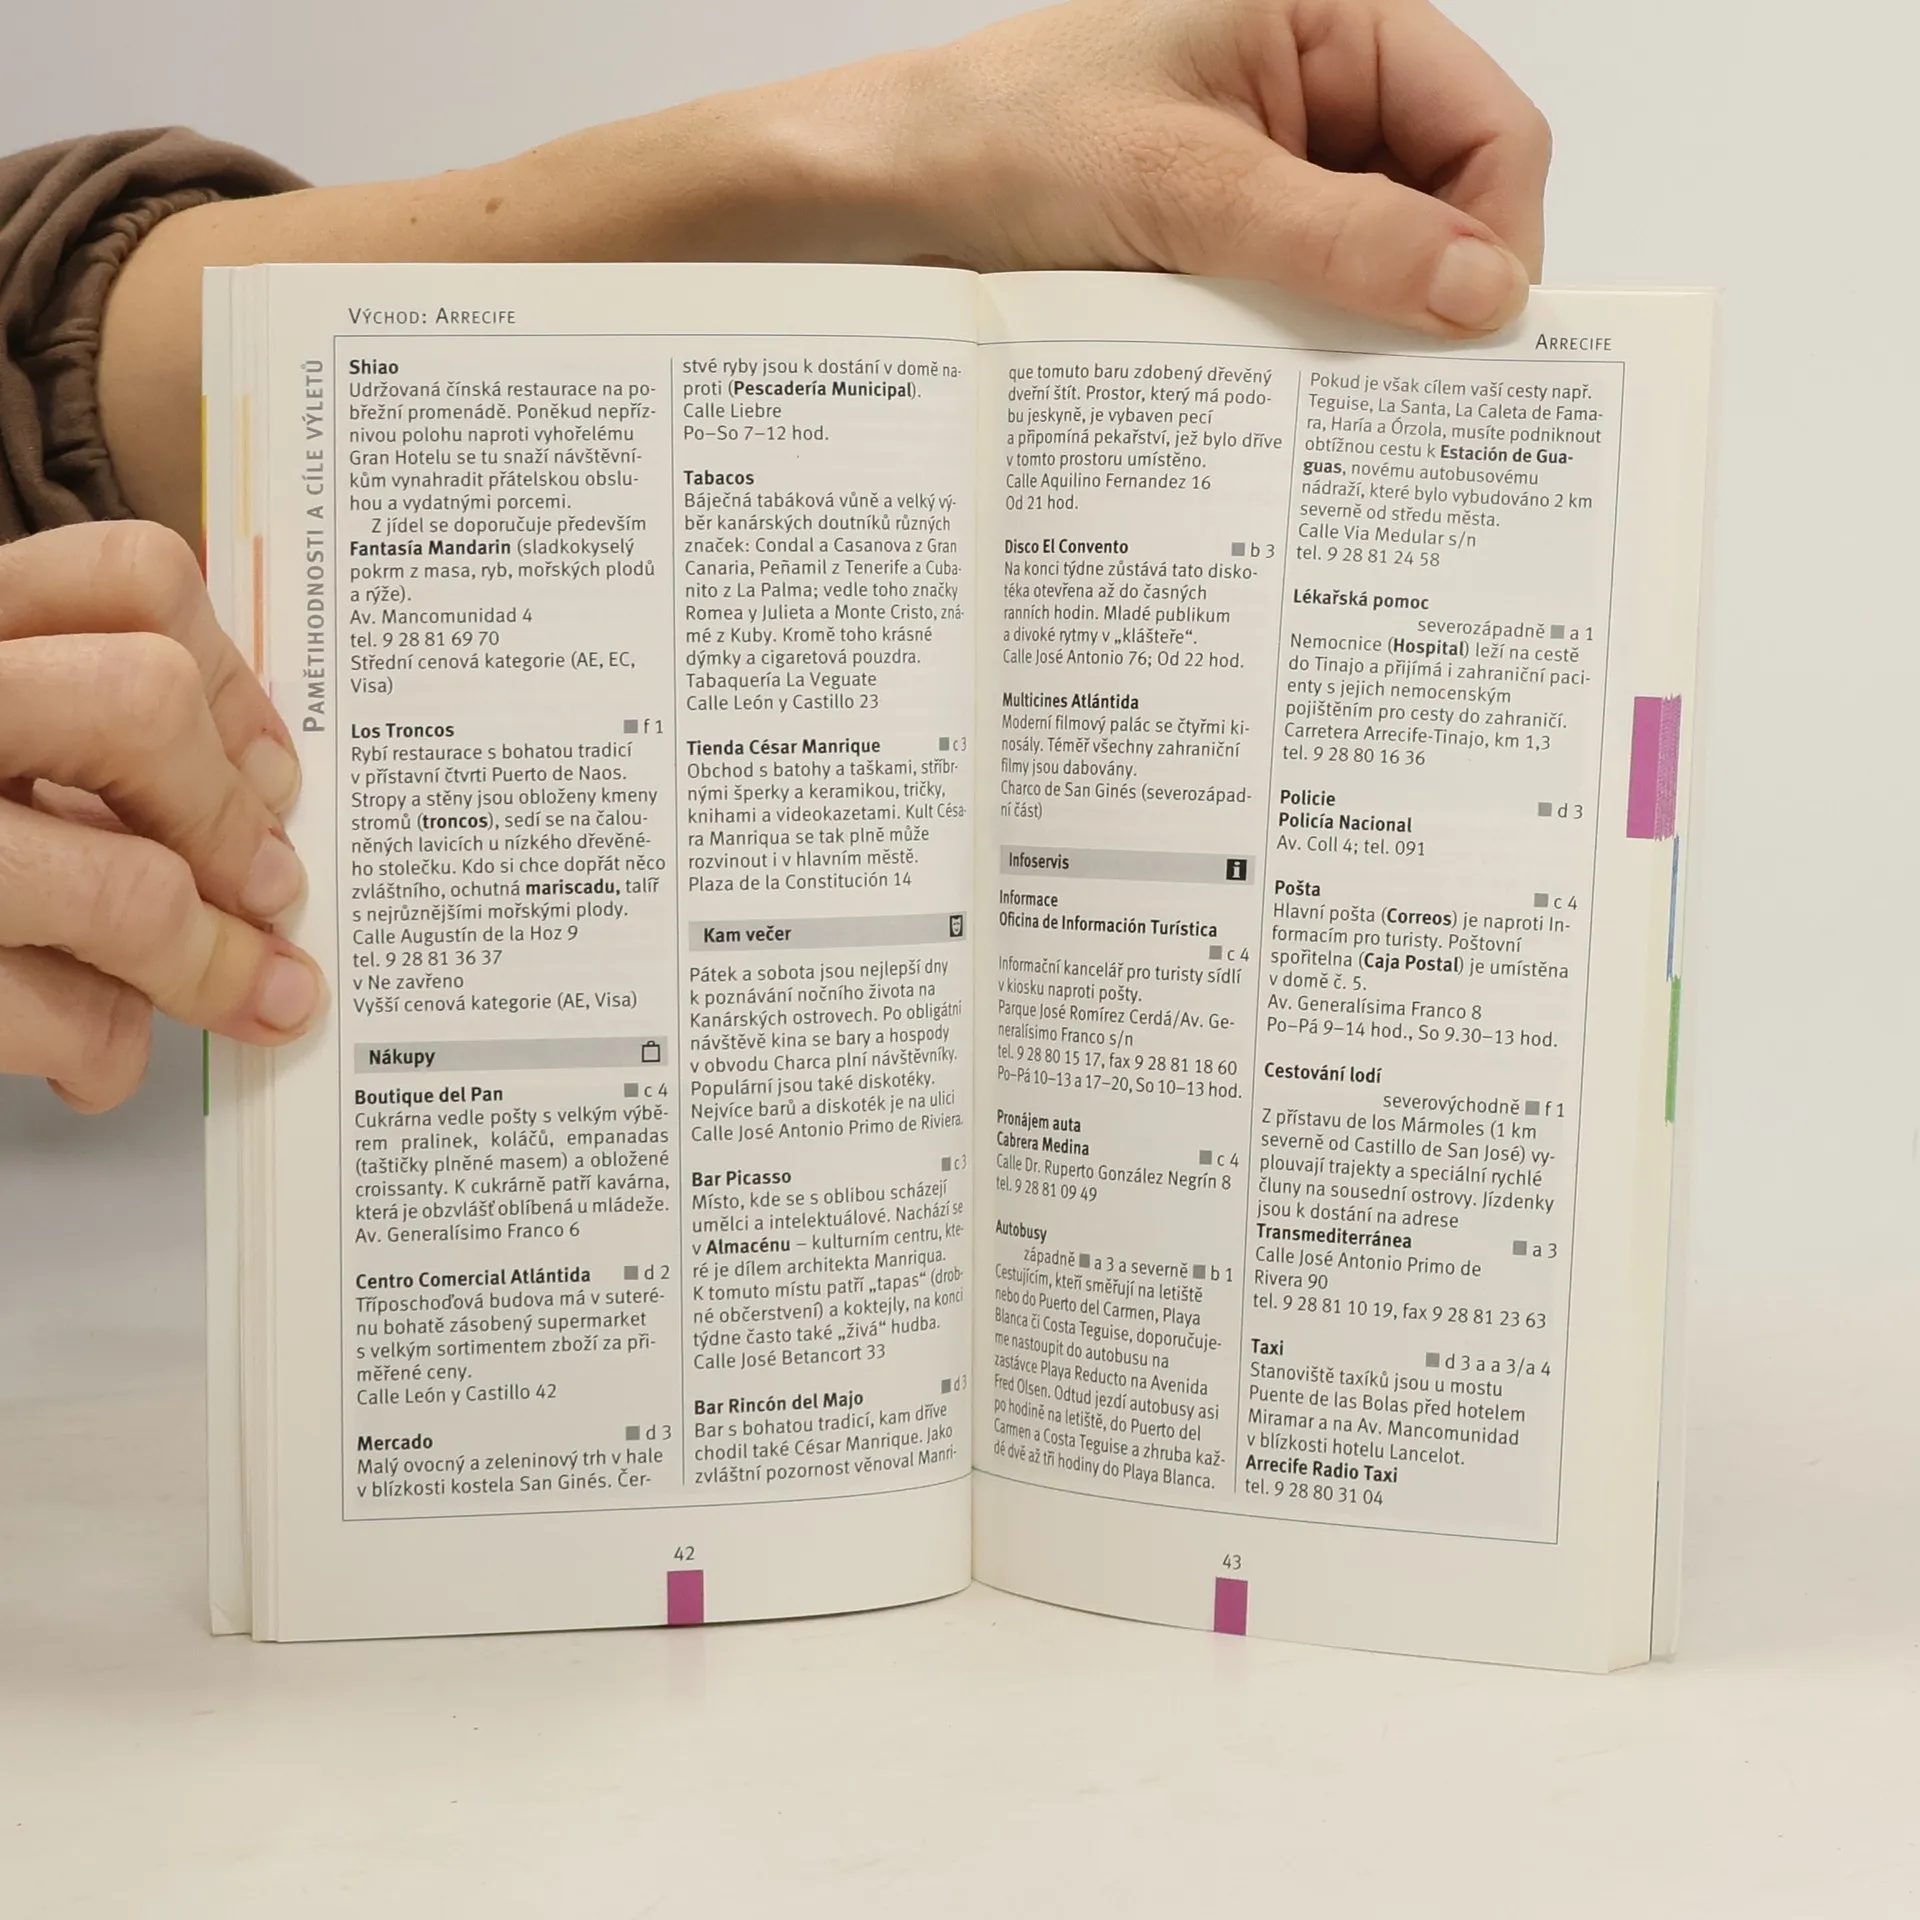 VÝCHOD: ARRECIFE
PAMĚTIHODNOSTI A CÍLE VÝLETŮ
Shiao
Udržovaná čínská restaurace na po-
břežní promenádě. Poněkud nepříz-
nivou polohu naproti vyhořelému
Gran Hotelu se tu snaží návštěvní-
kům vynahradit přátelskou obslu-
hou a vydatnými porcemi.
Z jídel se doporučuje především
Fantasía Mandarin (sladkokyselý
pokrm z masa, ryb, mořských plodů
a rýže).
Av. Mancomunidad 4
tel. 9 28 81 69 70
Střední cenová kategorie (AE, EC,
Visa)
Los Troncos f 1
Rybí restaurace s bohatou tradicí
v přístavní čtvrti Puerto de Naos.
Stropy a stěny jsou obloženy kmeny
stromů (troncos), sedí se na čalou-
něných lavicích u nízkého dřevěné-
ho stolečku. Kdo si chce dopřát něco
zvláštního, ochutná mariscadu, talíř
s nejrůznějšími mořskými plody.
Calle Augustín de la Hoz 9
tel. 9 28 81 36 37
v Ne zavřeno
Vyšší cenová kategorie (AE, Visa)
Nákupy
Boutique del Pan c 4
Cukrárna vedle pošty s velkým výbě-
rem pralinek, koláčů, empanadas
(taštičky plněné masem) a obložené
croissanty. K cukrárně patří kavárna,
která je obzvlášť oblíbená u mládeže.
Av. Generalísimo Franco 6
Centro Comercial Atlántida d 2
Tříposchoďová budova má v suteré-
nu bohatě zásobený supermarket
s velkým sortimentem zboží za při-
měřené ceny.
Calle León y Castillo 42
Mercado d 3
Malý ovocný a zeleninový trh v hale
v blízkosti kostela San Ginés. Čer-
stvé ryby jsou k dostání v domě na-
proti (Pescadería Municipal).
Calle Liebre
Po–So 7–12 hod.
Tabacos
Báječná tabáková vůně a velký vý-
běr kanárských doutníků různých
značek: Condal a Casanova z Gran
Canaria, Peñamil z Tenerife a Cuba-
nito z La Palma; vedle toho značky
Romea y Julieta a Monte Cristo, zná-
mé z Kuby. Kromě toho krásné
dýmky a cigaretová pouzdra.
Tabaquería La Veguate
Calle León y Castillo 23
Tienda César Manrique c 3
Obchod s batohy a taškami, stříbr-
nými šperky a keramikou, tričky,
knihami a videokazetami. Kult Césa-
ra Manriqua se tak plně může
rozvinout i v hlavním městě.
Plaza de la Constitución 14
Kam večer
Pátek a sobota jsou nejlepší dny
k poznávání nočního života na
Kanárských ostrovech. Po obligátní
návštěvě kina se bary a hospody
v obvodu Charca plní návštěvníky.
Populární jsou také diskotéky.
Nejvíce barů a diskoték je na ulici
Calle José Antonio Primo de Riviera.
Bar Picasso c 3
Místo, kde se s oblibou scházejí
umělci a intelektuálové. Nachází se
v Almacénu – kulturním centru, kte-
ré je dílem architekta Manriqua.
K tomuto místu patří „tapas“ (drob-
né občerstvení) a koktejly, na konci
týdne často také „živá“ hudba.
Calle José Betancort 33
Bar Rincón del Majo d 3
Bar s bohatou tradicí, kam dříve
chodil také César Manrique. Jako
zvláštní pozornost věnoval Manri-
42
ARRECIFE
que tomuto baru zdobený dřevěný
dveřní štít. Prostor, který má podo-
bu jeskyně, je vybaven pecí
a připomíná pekařství, jež bylo dříve
v tomto prostoru umístěno.
Calle Aquilino Fernandez 16
Od 21 hod.
Disco El Convento b 3
Na konci týdne zůstává tato disko-
téka otevřena až do časných
ranních hodin. Mladé publikum
a divoké rytmy v „klášteře“.
Calle José Antonio 76; Od 22 hod.
Multicines Atlántida
Moderní filmový palác se čtyřmi ki-
nosály. Téměř všechny zahraniční
filmy jsou dabovány.
Charco de San Ginés (severozápad-
ní část)
Infoservis i
Informace
Oficina de Información Turística
c 4
Informační kancelář pro turisty sídlí
v kiosku naproti pošty.
Parque José Romírez Cerdá/Av. Ge-
neralísimo Franco s/n
tel. 9 28 80 15 17, fax 9 28 81 18 60
Po–Pá 10–13 a 17–20, So 10–13 hod.
Pronájem auta
Cabrera Medina c 4
Calle Dr. Ruperto González Negrín 8
tel. 9 28 81 09 49
Autobusy
západně a 3 a severně b 1
Cestujícím, kteří směřují na letiště
nebo do Puerto del Carmen, Playa
Blanca či Costa Teguise, doporučuje-
me nastoupit do autobusu na
zastávce Playa Reducto na Avenida
Fred Olsen. Odtud jezdí autobusy asi
po hodině na letiště, do Puerto del
Carmen a Costa Teguise a zhruba kaž-
dé dvě až tři hodiny do Playa Blanca.
Pokud je však cílem vaší cesty např.
Teguise, La Santa, La Caleta de Fama-
ra, Haría a Órzola, musíte podniknout
obtížnou cestu k Estación de Gua-
guas, novému autobusovému
nádraží, které bylo vybudováno 2 km
severně od středu města.
Calle Via Medular s/n
tel. 9 28 81 24 58
Lékařská pomoc
severozápadně a 1
Nemocnice (Hospital) leží na cestě
do Tinajo a přijímá i zahraniční paci-
enty s jejich nemocenským
pojištěním pro cesty do zahraničí.
Carretera Arrecife-Tinajo, km 1,3
tel. 9 28 80 16 36
Policie d 3
Policía Nacional
Av. Coll 4; tel. 091
Pošta c 4
Hlavní pošta (Correos) je naproti In-
formacím pro turisty. Poštovní
spořitelna (Caja Postal) je umístěna
v domě č. 5.
Av. Generalísima Franco 8
Po–Pá 9–14 hod., So 9.30–13 hod.
Cestování lodí
severovýchodně f 1
Z přístavu de los Mármoles (1 km
severně od Castillo de San José) vy-
plouvají trajekty a speciální rychlé
čluny na sousední ostrovy. Jízdenky
jsou k dostání na adrese
Transmediterránea a 3
Calle José Antonio Primo de
Rivera 90
tel. 9 28 81 10 19, fax 9 28 81 23 63
Taxi d 3 a a 3/a 4
Stanoviště taxíků jsou u mostu
Puente de las Bolas před hotelem
Miramar a na Av. Mancomunidad
v blízkosti hotelu Lancelot.
Arrecife Radio Taxi
tel. 9 28 80 31 04
43